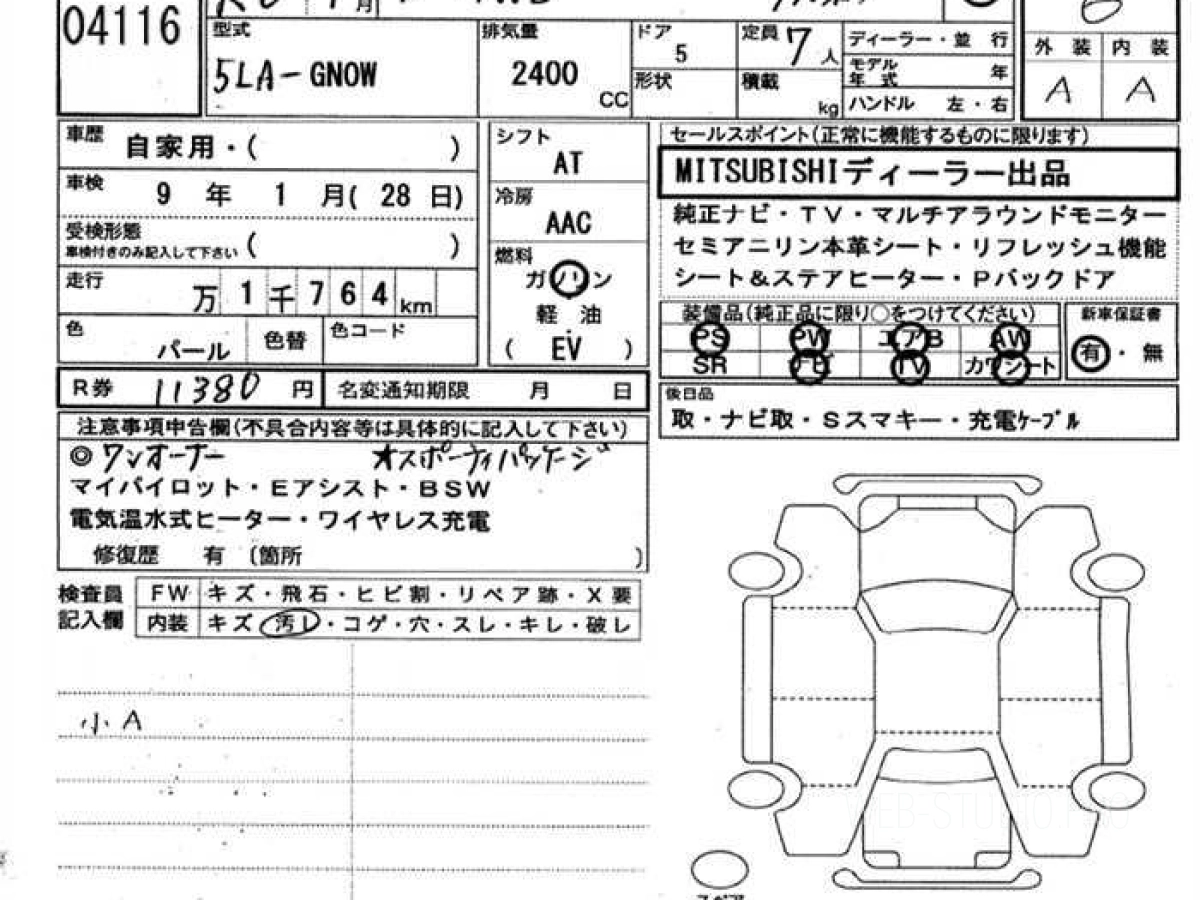 04116
月
型式
5LA-GNOW
排気量
2400
CC
ドア
5
形状
定員
7人
積載
kg
ディーラー・並 行
モデル
年 式 年
ハンドル 左・右
外 装 内 装
A A
車歴
自家用・( )
車検
9 年 1 月( 28 日)
受検形態
車検付きのみ記入して下さい ( )
走行
万 1 千 7 6 4 km
色
パール
色替
色コード
R券 11380 円
名変通知期限 月 日
シフト
AT
冷房
AAC
燃料
ガ ハ ン
軽 油
( EV )
セールスポイント(正常に機能するものに限ります)
MITSUBISHIディーラー出品
純正ナビ・TV・マルチアラウンドモニター
セミアニリン本革シート・リフレッシュ機能
シート&ステアヒーター・Pバックドア
装備品(純正品に限り○をつけてください)
PS PW エアB AW
SR ナビ TV カワシート
新車保証書
有・無
後日品
取・ナビ取・Sスマキー・充電ケーブル
注意事項申告欄(不具合内容等は具体的に記入して下さい)
◎ワンオーナー ★スポーティパッケージ
マイパイロット・Eアシスト・BSW
電気温水式ヒーター・ワイヤレス充電
修復歴 有 (箇所 )
検査員
記入欄
FW キズ・飛石・ヒビ割・リペア跡・X要
内装 キズ・汚レ・コゲ・穴・スレ・キレ・破レ
小A
WEB-STUDIO.PRO